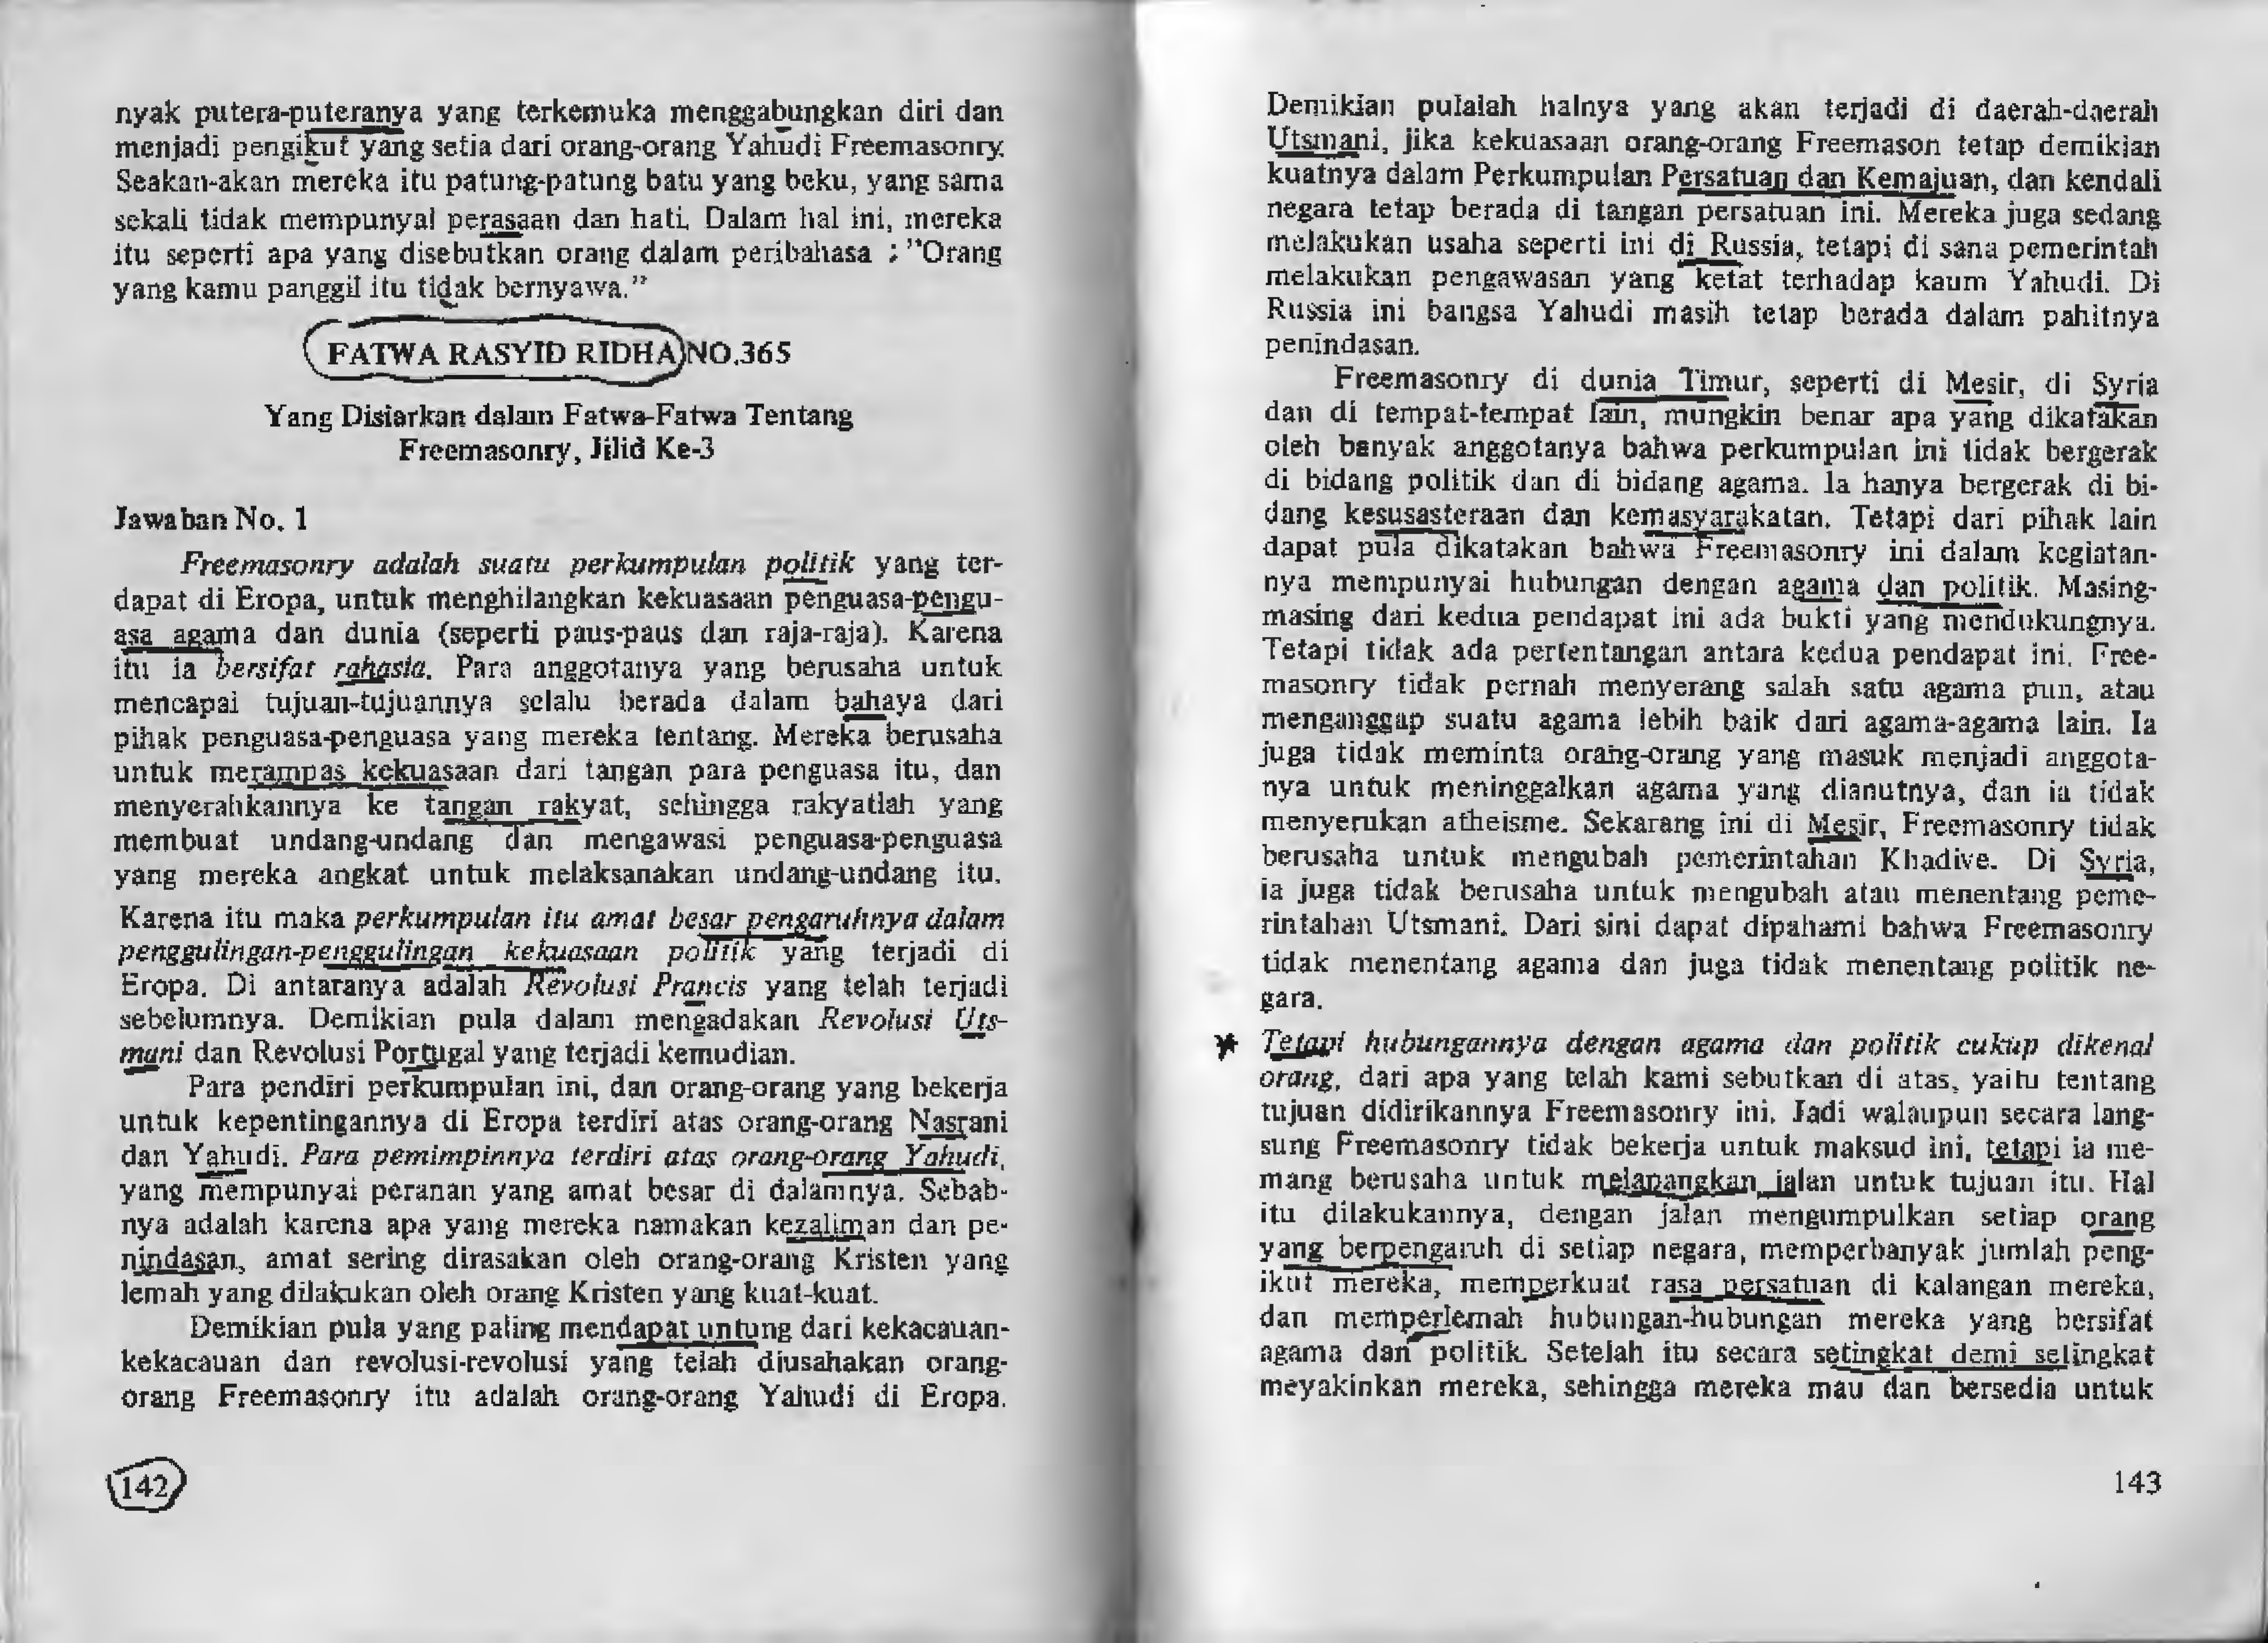 nyak putera-puteranya yang terkemuka menggabungkan diri dan
menjadi pengikut yang setia dari orang-orang Yahudi Freemasonry.
Seakan-akan mereka itu patung-patung batu yang beku, yang sama
sekali tidak mempunyai perasaan dan hati. Dalam hal ini, mereka
itu seperti apa yang disebutkan orang dalam peribahasa : "Orang
yang kamu panggil itu tidak bernyawa."
FATWA RASYID RIDHA NO.365
Yang Disiarkan dalam Fatwa-Fatwa Tentang
Freemasonry, Jilid Ke-3
Jawaban No. 1
Freemasonry adalah suatu perkumpulan politik yang ter-
dapat di Eropa, untuk menghilangkan kekuasaan penguasa-pengu-
asa agama dan dunia (seperti paus-paus dan raja-raja). Karena
itu ia bersifat rahasia. Para anggotanya yang berusaha untuk
mencapai tujuan-tujuannya selalu berada dalam bahaya dari
pihak penguasa-penguasa yang mereka tentang. Mereka berusaha
untuk merampas kekuasaan dari tangan para penguasa itu, dan
menyerahkannya ke tangan rakyat, sehingga rakyatlah yang
membuat undang-undang dan mengawasi penguasa-penguasa
yang mereka angkat untuk melaksanakan undang-undang itu.
Karena itu maka perkumpulan itu amat besar pengaruhnya dalam
penggulingan-penggulingan kekuasaan politik yang terjadi di
Eropa. Di antaranya adalah Revolusi Prancis yang telah terjadi
sebelumnya. Demikian pula dalam mengadakan Revolusi Uts-
mani dan Revolusi Portugal yang terjadi kemudian.
Para pendiri perkumpulan ini, dan orang-orang yang bekerja
untuk kepentingannya di Eropa terdiri atas orang-orang Nasrani
dan Yahudi. Para pemimpinnya terdiri atas orang-orang Yahudi,
yang mempunyai peranan yang amat besar di dalamnya. Sebab-
nya adalah karena apa yang mereka namakan kezaliman dan pe-
nindasan, amat sering dirasakan oleh orang-orang Kristen yang
lemah yang dilakukan oleh orang Kristen yang kuat-kuat.
Demikian pula yang paling mendapat untung dari kekacauan-
kekacauan dan revolusi-revolusi yang telah diusahakan orang-
orang Freemasonry itu adalah orang-orang Yahudi di Eropa.
142
Demikian pulalah halnya yang akan terjadi di daerah-daerah
Utsmani, jika kekuasaan orang-orang Freemason tetap demikian
kuatnya dalam Perkumpulan Persatuan dan Kemajuan, dan kendali
negara tetap berada di tangan persatuan ini. Mereka juga sedang
melakukan usaha seperti ini di Russia, tetapi di sana pemerintah
melakukan pengawasan yang ketat terhadap kaum Yahudi. Di
Russia ini bangsa Yahudi masih tetap berada dalam pahitnya
penindasan.
Freemasonry di dunia Timur, seperti di Mesir, di Syria
dan di tempat-tempat lain, mungkin benar apa yang dikatakan
oleh banyak anggotanya bahwa perkumpulan ini tidak bergerak
di bidang politik dan di bidang agama. Ia hanya bergerak di bi-
dang kesusasteraan dan kemasyarakatan. Tetapi dari pihak lain
dapat pula dikatakan bahwa Freemasonry ini dalam kegiatan-
nya mempunyai hubungan dengan agama dan politik. Masing-
masing dari kedua pendapat ini ada bukti yang mendukungnya.
Tetapi tidak ada pertentangan antara kedua pendapat ini. Free-
masonry tidak pernah menyerang salah satu agama pun, atau
menganggap suatu agama lebih baik dari agama-agama lain. Ia
juga tidak meminta orang-orang yang masuk menjadi anggota-
nya untuk meninggalkan agama yang dianutnya, dan ia tidak
menyerukan atheisme. Sekarang ini di Mesir, Freemasonry tidak
berusaha untuk mengubah pemerintahan Khadive. Di Syria,
ia juga tidak berusaha untuk mengubah atau menentang peme-
rintahan Utsmani. Dari sini dapat dipahami bahwa Freemasonry
tidak menentang agama dan juga tidak menentang politik ne-
gara.
Tetapi hubungannya dengan agama dan politik cukup dikenal
orang, dari apa yang telah kami sebutkan di atas, yaitu tentang
tujuan didirikannya Freemasonry ini. Jadi walaupun secara lang-
sung Freemasonry tidak bekerja untuk maksud ini, tetapi ia me-
mang berusaha untuk melapangkan jalan untuk tujuan itu. Hal
itu dilakukannya, dengan jalan mengumpulkan setiap orang
yang berpengaruh di setiap negara, memperbanyak jumlah peng-
ikut mereka, memperkuat rasa persatuan di kalangan mereka,
dan memperlemah hubungan-hubungan mereka yang bersifat
agama dan politik. Setelah itu secara setingkat demi setingkat
meyakinkan mereka, sehingga mereka mau dan bersedia untuk
143